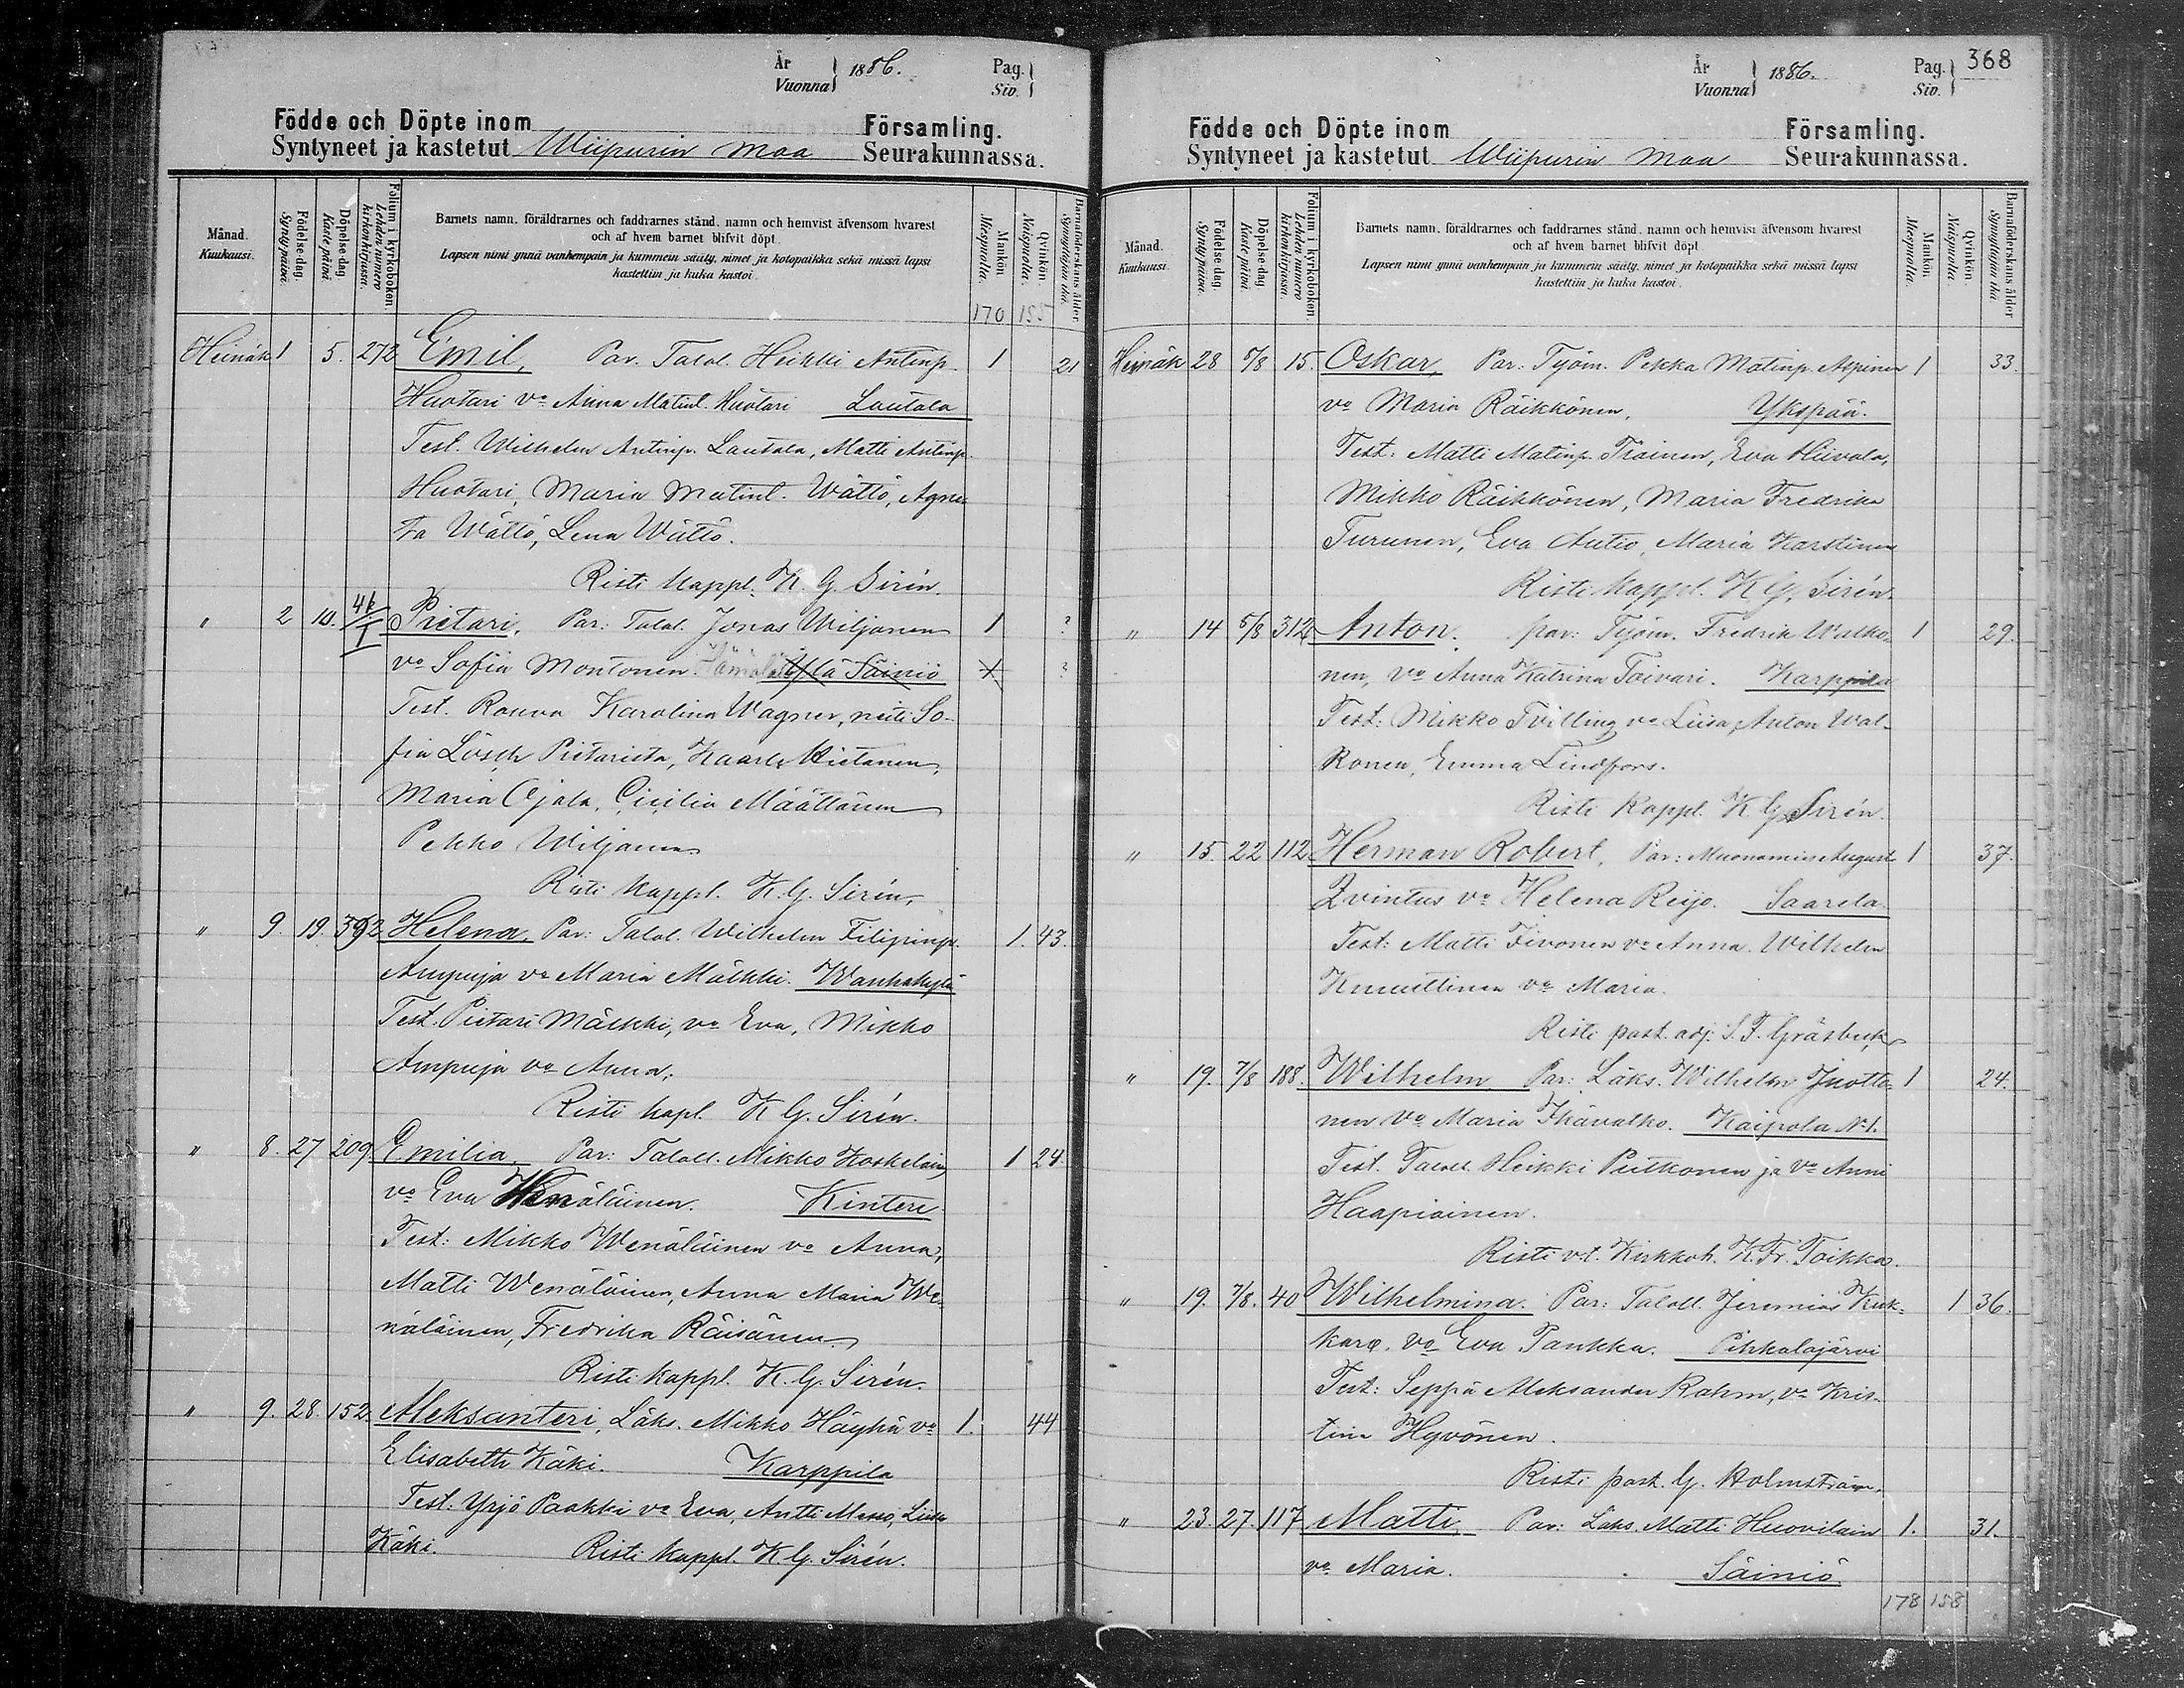 År
Vuonna } 1886.
Pag.
Siv.
Födde och Döpte inom
Församling.
Syntyneet ja kastetut Wiipurin maa Seurakunnassa.
Månad.
Kuukausi.
Födelse dag.
Syntypäivä.
Döpelse dag.
Kaste päivä.
Folium i kyrkoboken.
Lehden numero
kirkonkirjassa.
Barnets namn, föräldrarnes och faddrarnes stånd, namn och hemvist äfvensom hvarest
och af hvem barnet blifvit döpt.
Lapsen nimi ynnä vanhempain ja kummein sääty, nimet ja kotopaikka sekä missä lapsi
kastettiin ja kuka kastoi.
Mankön.
Miespuolia.
Qvinkön.
Naispuolia.
Barnaföderskans ålder
Synnyttäjän ikä.
170 155
Heinäk 1 5. 272 Emil, Par. Talol. Heikki Antinp. 1 21
Huotari vo Anna Matint. Huotari Lautala
Test. Wilhelm Antinp. Lautala, Matti Antinp.
Huotari, Maria Matint. Wättö, Agne-
ta Wättö, Lena Wättö.
Risti Kappl. K. G. Sirén.
" 2 10. Pietari, Par: Talol. Jonas Wiljanen 1 ?
vo Sofia Montonen. Säiniö ?
Test. Rouva Karolina Wagner, neiti So-
fia Lösch Pietarista, Kaarle Mietanen,
Maria Ojala, Cicilia Määttänen
Pekko Wiljanen
Risti Kappl. K. G. Sirén,
" 9. 19. 392 Helena, Par: Talol. Wilhelm Filipinp. 1. 43.
Ampuja vo Maria Mälkki. Wanhakylä
Test. Pietari Mälkki, vo Eva, Mikko
Ampuja vo Anna,
Risti kapl. K G. Sirén.
" 8. 27 209. Emilia, Par: Taloll. Mikko Koskelain, 1 24.
vo Eva Wenäläinen. Kintere
Test: Mikko Wenäläinen vo Anna,
Matti Wenäläinen, Anna Maria We-
näläinen, Fredrika Räisänen,
Risti kappl. K. G. Sirén.
" 9. 28. 152. Aleksanteri, Läks. Mikko Häyhä vo 1. 44
Elisabeth Käki. Karppila
Test: Yrjö Paakki vo Eva, Antti Liisa
Käki. Risti Kappl. K G. Sirén.
År
Vuonna } 1886.
Pag.
Siv. } 368
Födde och Döpte inom
Församling.
Syntyneet ja kastetut Wiipurin maa Seurakunnassa.
Månad.
Kuukausi.
Födelse dag.
Syntypäivä.
Döpelse dag.
Kaste päivä.
Folium i kyrkoboken.
Lehden numero
kirkonkirjassa.
Barnets namn, föräldrarnes och faddrarnes stånd, namn och hemvist äfvensom hvarest
och af hvem barnet blifvit döpt.
Lapsen nimi ynnä vanhempain ja kummein sääty, nimet ja kotopaikka sekä missä lapsi
kastettiin ja kuka kastoi.
Mankön.
Miespuolia.
Qvinkön.
Naispuolia.
Barnaföderskans ålder
Synnyttäjän ikä.
Heinäk 28 5/8 15. Oskar, Par: Työm. Pekka Matinp. 1 33.
vo Maria Räikkönen, Ykspää.
Test: Matti Matinp. Eva Hiivala,
Mikko Räikkönen, Maria Fredrika
Turunen, Eva Autio, Maria Karstinen
Risti Kappl. K G. Sirén.
" 14 5/8 312 Anton. par: Työm. Fredrik Walko- 1 29.
nen, vo Anna Katrina Toivari. Karppila
Test: Mikko Tvilling vo Liisa, Anton Wal-
konen, Emma Lindfors.
Risti Kappl. K G. Sirén.
" 15. 22 112 Herman Robert, Par: August 1 37.
Qvintus vo Helena Reijo. Saarela
Test: Matti vo Anna. Wilhelm
Knuuttinen vo Maria.
Risti past. adj. S. F. Gräsbeck,
" 19. 7/8 188. Wilhelm Par: Läks. Wilhelm Juotto- 1 24.
nen vo Maria Ikävalko. Kaipola No 1.
Test. Taloll. Heikki Putkonen ja vo Anni
Haapiainen.
Risti v.t. Kirkkoh. K. Fr. Toikka.
" 19. 7/8. 40 Wilhelmina. Par: Taloll. Jeremias Kuk- 1 36.
karo. vo Eva Pankka. Pihkalajärvi
Test: Seppä Aleksander Rahm, vo Kris-
tina Hyvönen.
Risti past. G. Holmström.
" 23. 27. 117 Matti, Par: Läks. Matti Huovilain 1. 31.
vo Maria. Säiniö
178 158